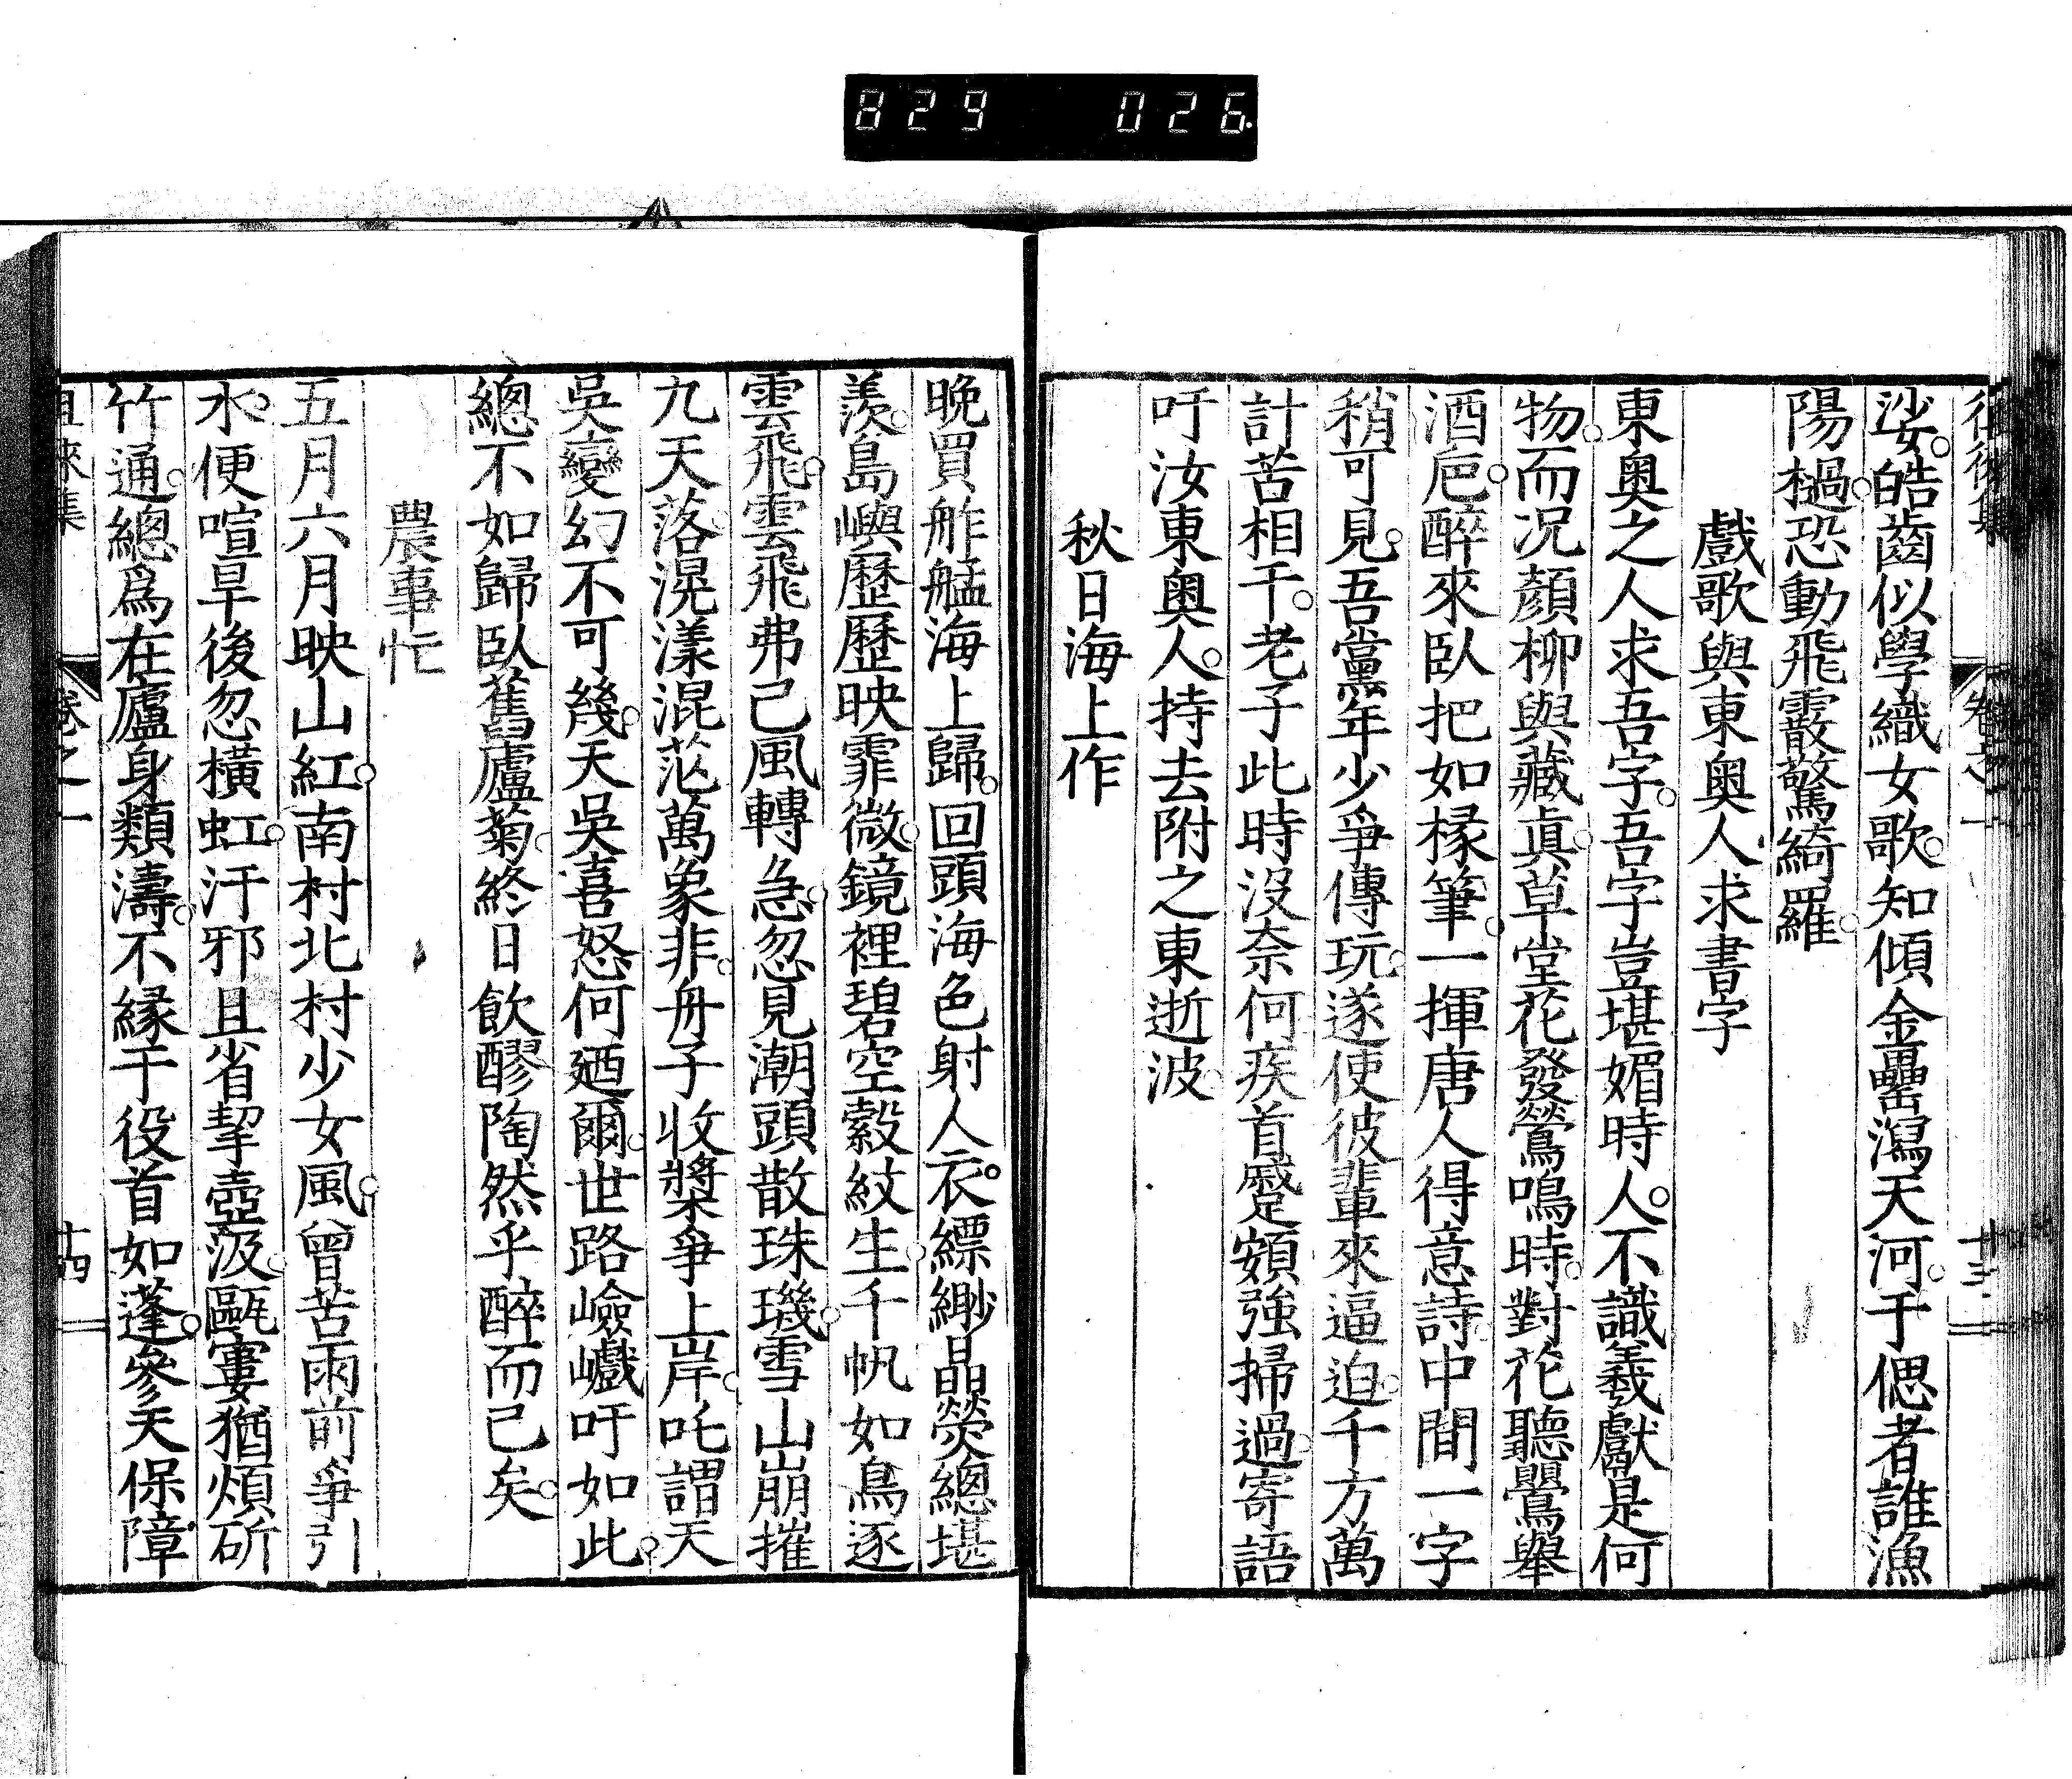 829 026.
徂徠集 卷之一 十三
娑皓齒似學織女歌知傾金罍瀉天河于偲者誰漁
陽檛恐動飛霰驚綺羅
戲歌與東奧人求書字
東奧之人求吾字吾字豈堪媚時人不識羲獻是何
物而況顏柳與藏眞草堂花發鶯鳴時對花聽鸎舉
酒巵醉來臥把如椽筆一揮唐人得意詩中間一字
稍可見吾黨年少爭傳玩遂使彼輩來逼迫千方萬
計苦相干老子此時沒奈何疾首蹙頞強掃過寄語
吁汝東奧人持去附之東逝波
秋日海上作
晚買舴艋海上歸回頭海色射人衣縹緲晶熒總堪
羨島嶼歷歷映霏微鏡裡碧空縠紋生千帆如鳥逐
雲飛雲飛弗已風轉急忽見潮頭散珠璣雪山崩摧
九天落滉漾混茫萬象非舟子收槳爭上岸吒謂天
吳變幻不可幾天吳喜怒何廼爾世路嶮巇吁如此
總不如歸臥舊廬菊終日飲醪陶然乎醉而已矣
農事忙
五月六月映山紅南村北村少女風曾苦雨前爭引
水便喧旱後忽橫虹汙邪且省挈壺汲甌窶猶煩斫
竹通總爲在廬身類濤不緣干役首如蓬參天保障
徂徠集 卷之一 十四